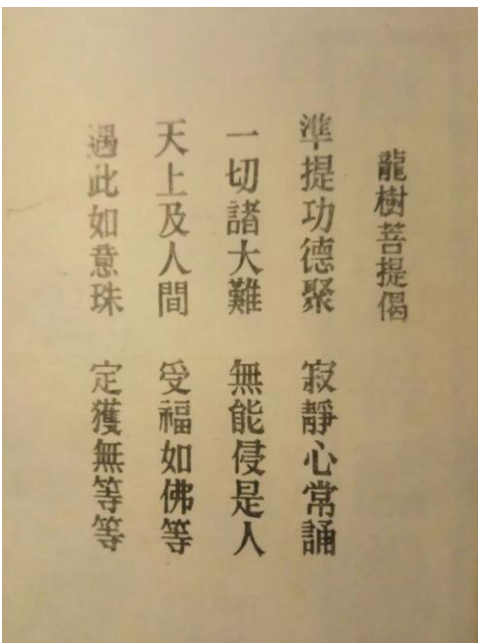 龍樹菩提偈
準提功德聚　寂靜心常誦
一切諸大難　無能侵是人
天上及人間　受福如佛等
遇此如意珠　定獲無等等